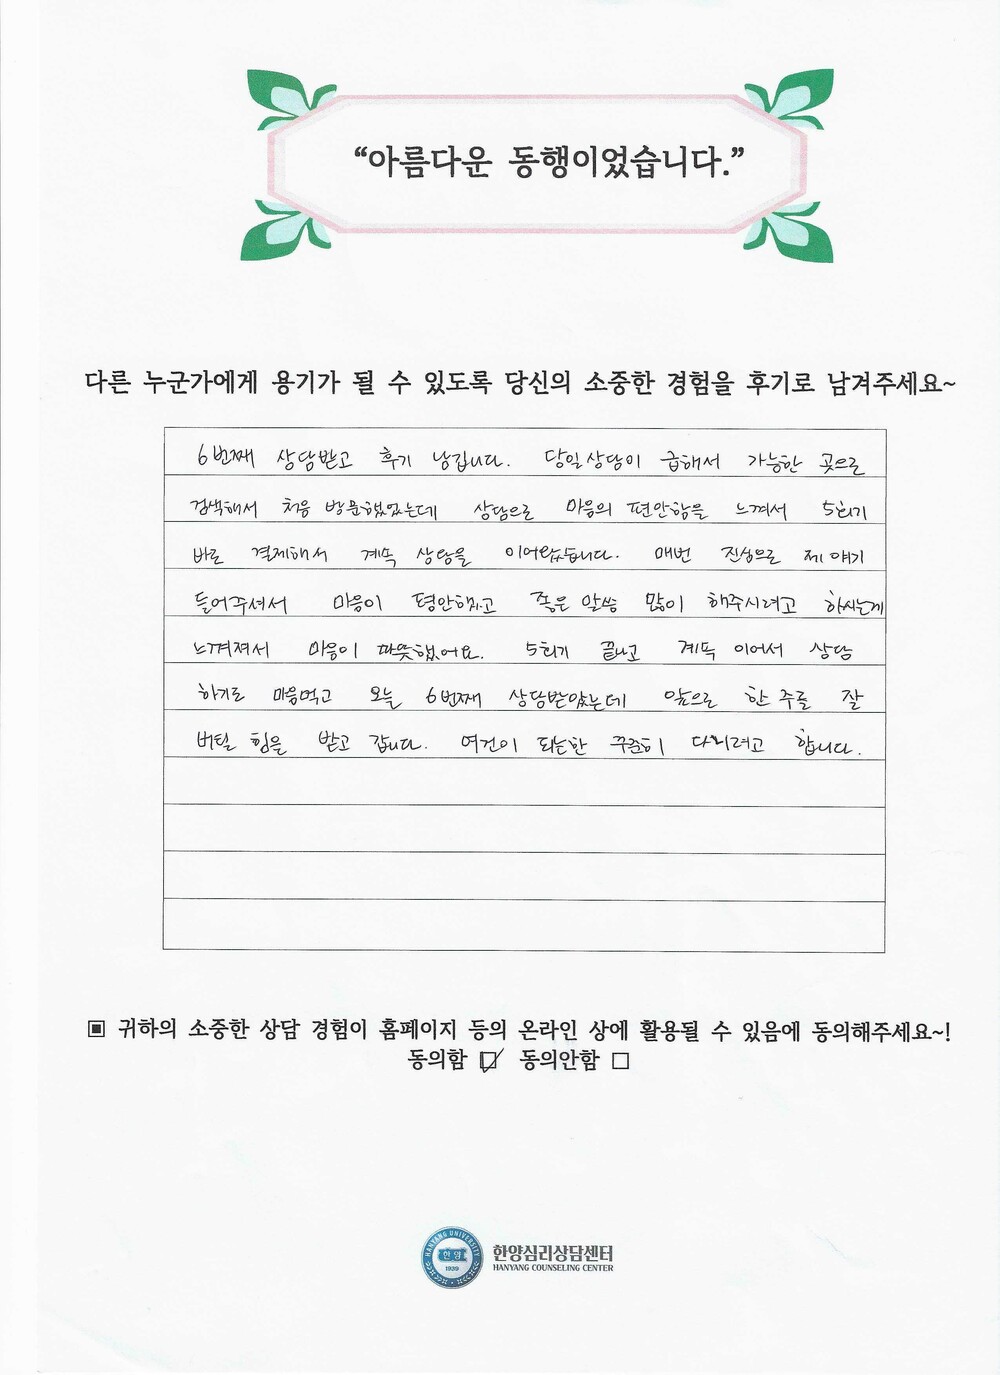 “아름다운 동행이었습니다.”
다른 누군가에게 용기가 될 수 있도록 당신의 소중한 경험을 후기로 남겨주세요~
6번째 상담받고 후기 남깁니다. 당일상담이 급해서 가능한 곳으로
검색해서 처음 방문했었는데 상담으로 마음의 편안함을 느껴서 5회기
바로 결제해서 계속 상담을 이어왔습니다. 매번 진심으로 제 얘기
들어주셔서 마음이 평안해지고 좋은 말씀 많이 해주시려고 하시는게
느껴져서 마음이 따뜻했어요. 5회기 끝나고 계속 이어서 상담
하기로 마음먹고 오늘 6번째 상담받았는데 앞으로 한 주를 잘
버틸 힘을 받고 갑니다. 여건이 되는한 꾸준히 다니려고 합니다.
▣ 귀하의 소중한 상담 경험이 홈페이지 등의 온라인 상에 활용될 수 있음에 동의해주세요~!
동의함 ☑ 동의안함 □
HANYANG UNIVERSITY
한양
1939
한양심리상담센터
HANYANG COUNSELING CENTER